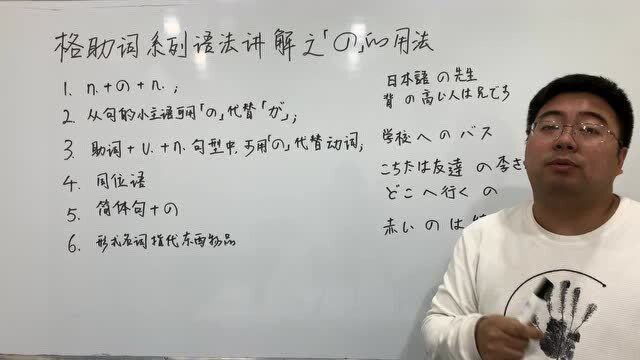 格助词系列语法讲解之「の」的用法
1. n.+の+n.;
2. 从句的小主语可用「の」代替「が」;
3. 助词+v.+n.句型中,可用「の」代替动词;
4. 同位语
5. 简体句+の
6. 形式名词指代东西物品
日本語の先生
背の高い人は兄です
学校へのバス
こちらは友達の李さ
どこへ行くの
赤いのは